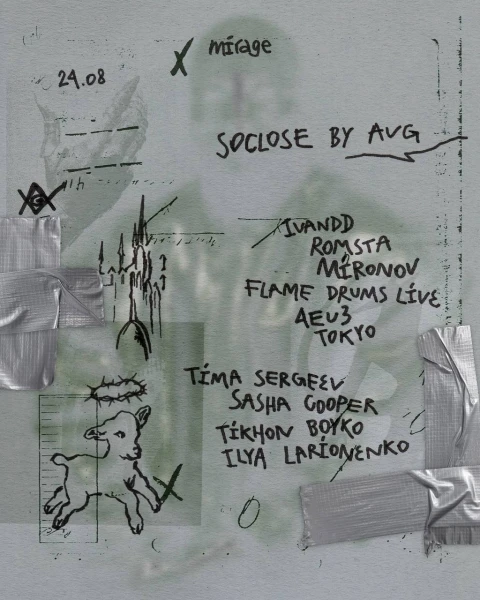 mírage
24.08
SOCLOSE BY AVG
IVANDD
ROMSTA
MÍRONOV
FLAME DRUMS LÍVE
AEU3
TOKYO
TÍMA SERGEEV
SASHA COOPER
TÍKHON BOYKO
ILYA LARÍONENKO